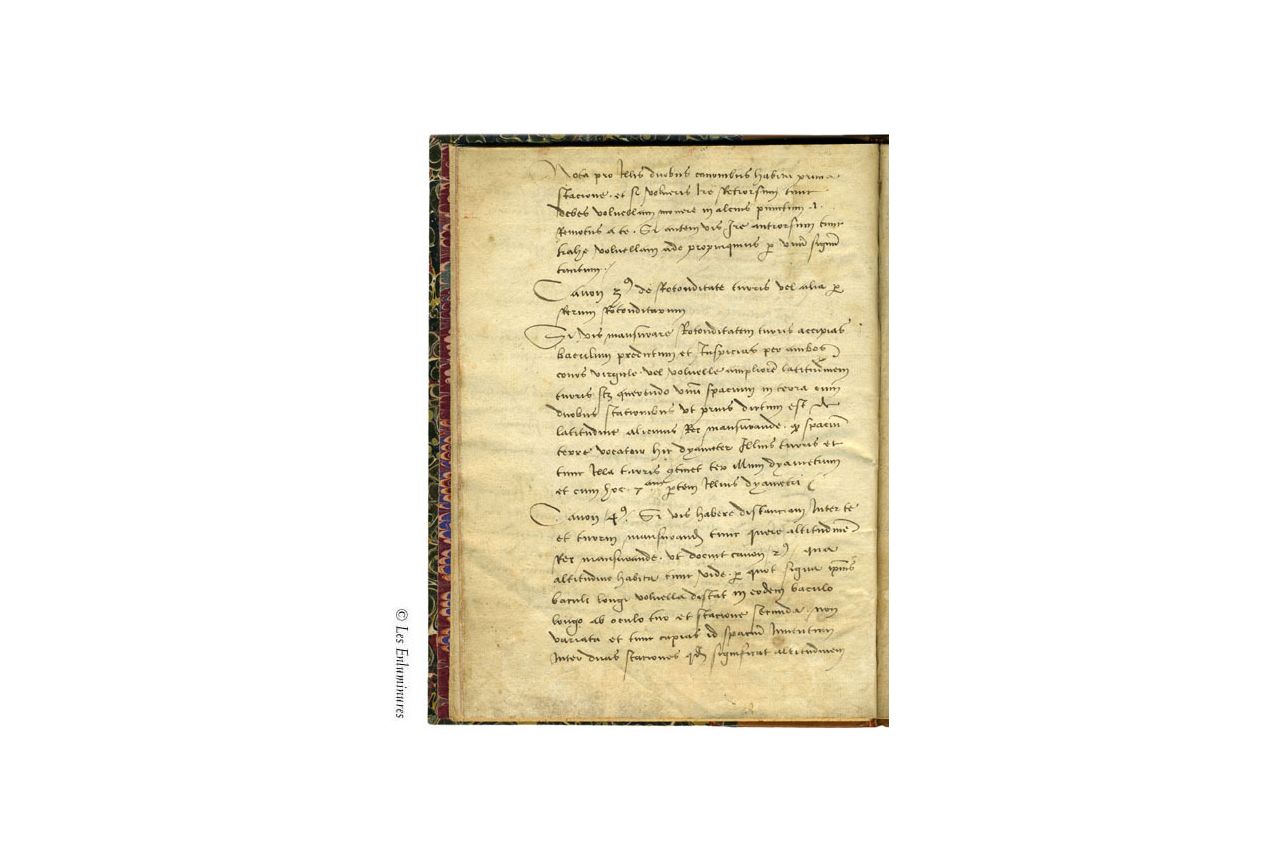 Nota pro Illis duobus canonibus habita prima
stacione. et si volueris Ire Retrorsum tunc
debes voluellam mouere in alcius punctum .1.
Remotius a te. Si autem vis Ire antrorsum tunc
trahe voluellam ad propinquius p vnū signū
tantum.
Canon 3⁹ de Rotonditate turris vel alia p
Rerum Rotonditatum
Si vis mansurare Rotonditatem turris accipias
baculum predictum et Inspicias per ambos
conos virgule vel voluelle ampliorē latitudinem
turris querendo vnū spacium in terra cum
duobus stacionibus vt prius dictum est de
latitudine alicuius Rei mansurande. spaciū
terre vocatur hic dyameter Illius turris et
tunc Illa turris 9tinet ter illum dyametrum
et cum hoc 7 ptem Illius dyametri
Canon 4⁹. Si vis habere distanciam Inter te
et turrim tunc quere altitudinē
Rei mansurande. vt docuit canon 2⁹ qua
altitudine habita tunc vide. p quot signa
baculi longi voluella distat in eodem baculo
longo ab oculo tuo et stacione secunda. non
variata et tunc capias id spaciū Inuentum
Inter duas staciones significat altitudinem
© Les Enluminures